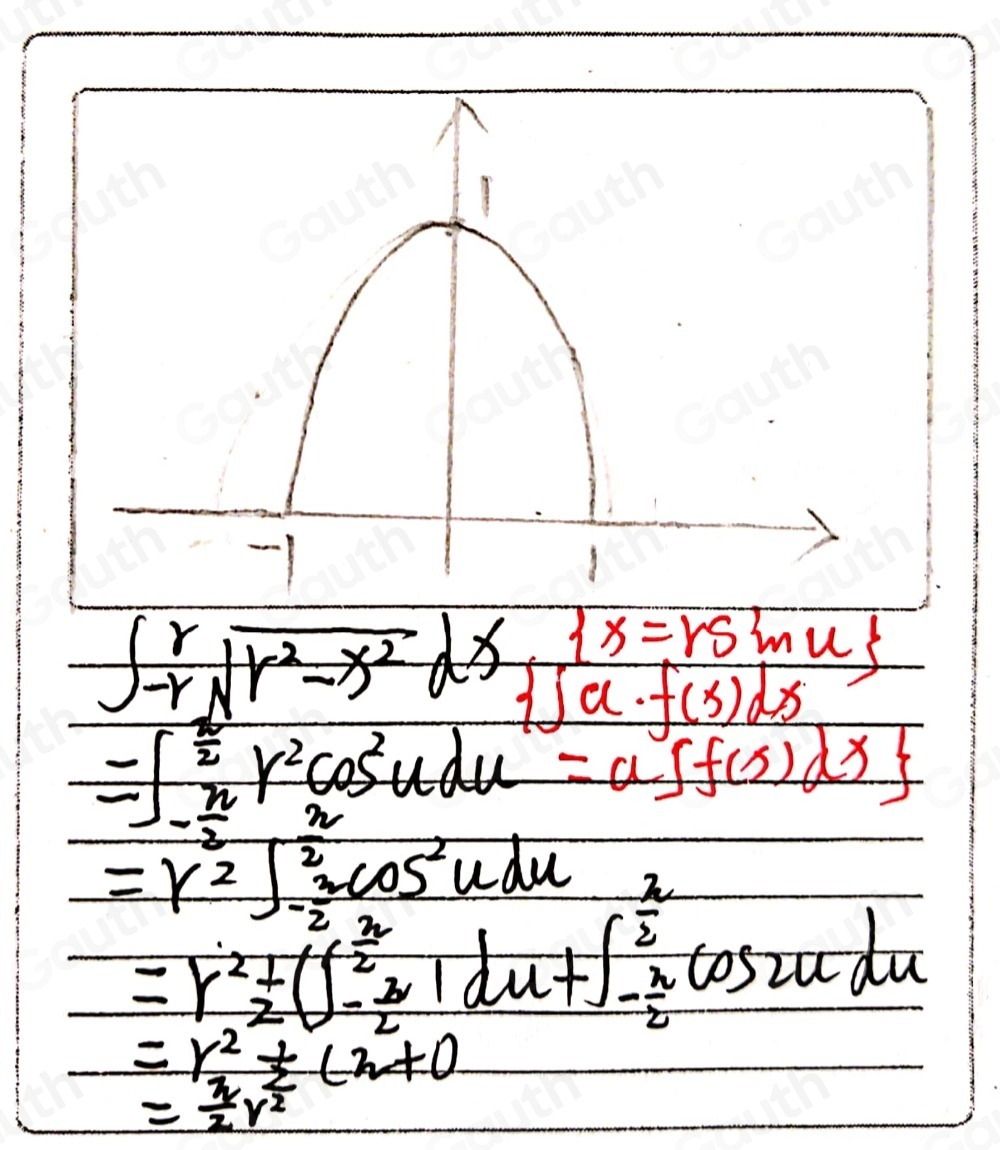 1
-1 1
∫_{-r}^{r} √(r²-x²) dx {x = r sin u}
{∫a·f(x)dx
= ∫_{-π/2}^{π/2} r² cos² u du = a∫f(x)dx}
= r² ∫_{-π/2}^{π/2} cos² u du
= r² 1/2 (∫_{-π/2}^{π/2} 1 du + ∫_{-π/2}^{π/2} cos 2u du
= r² 1/2 (π+0
= π/2 r²